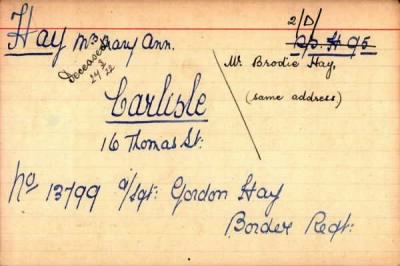 2/D/
Hay Mrs Mary Ann. Sp. H 95
Deceased
24/3/22
Mr. Brodie Hay,
(same address)
Carlisle
16 Thomas St:
No 13799 A/Sgt: Gordon Hay
Border Regt: